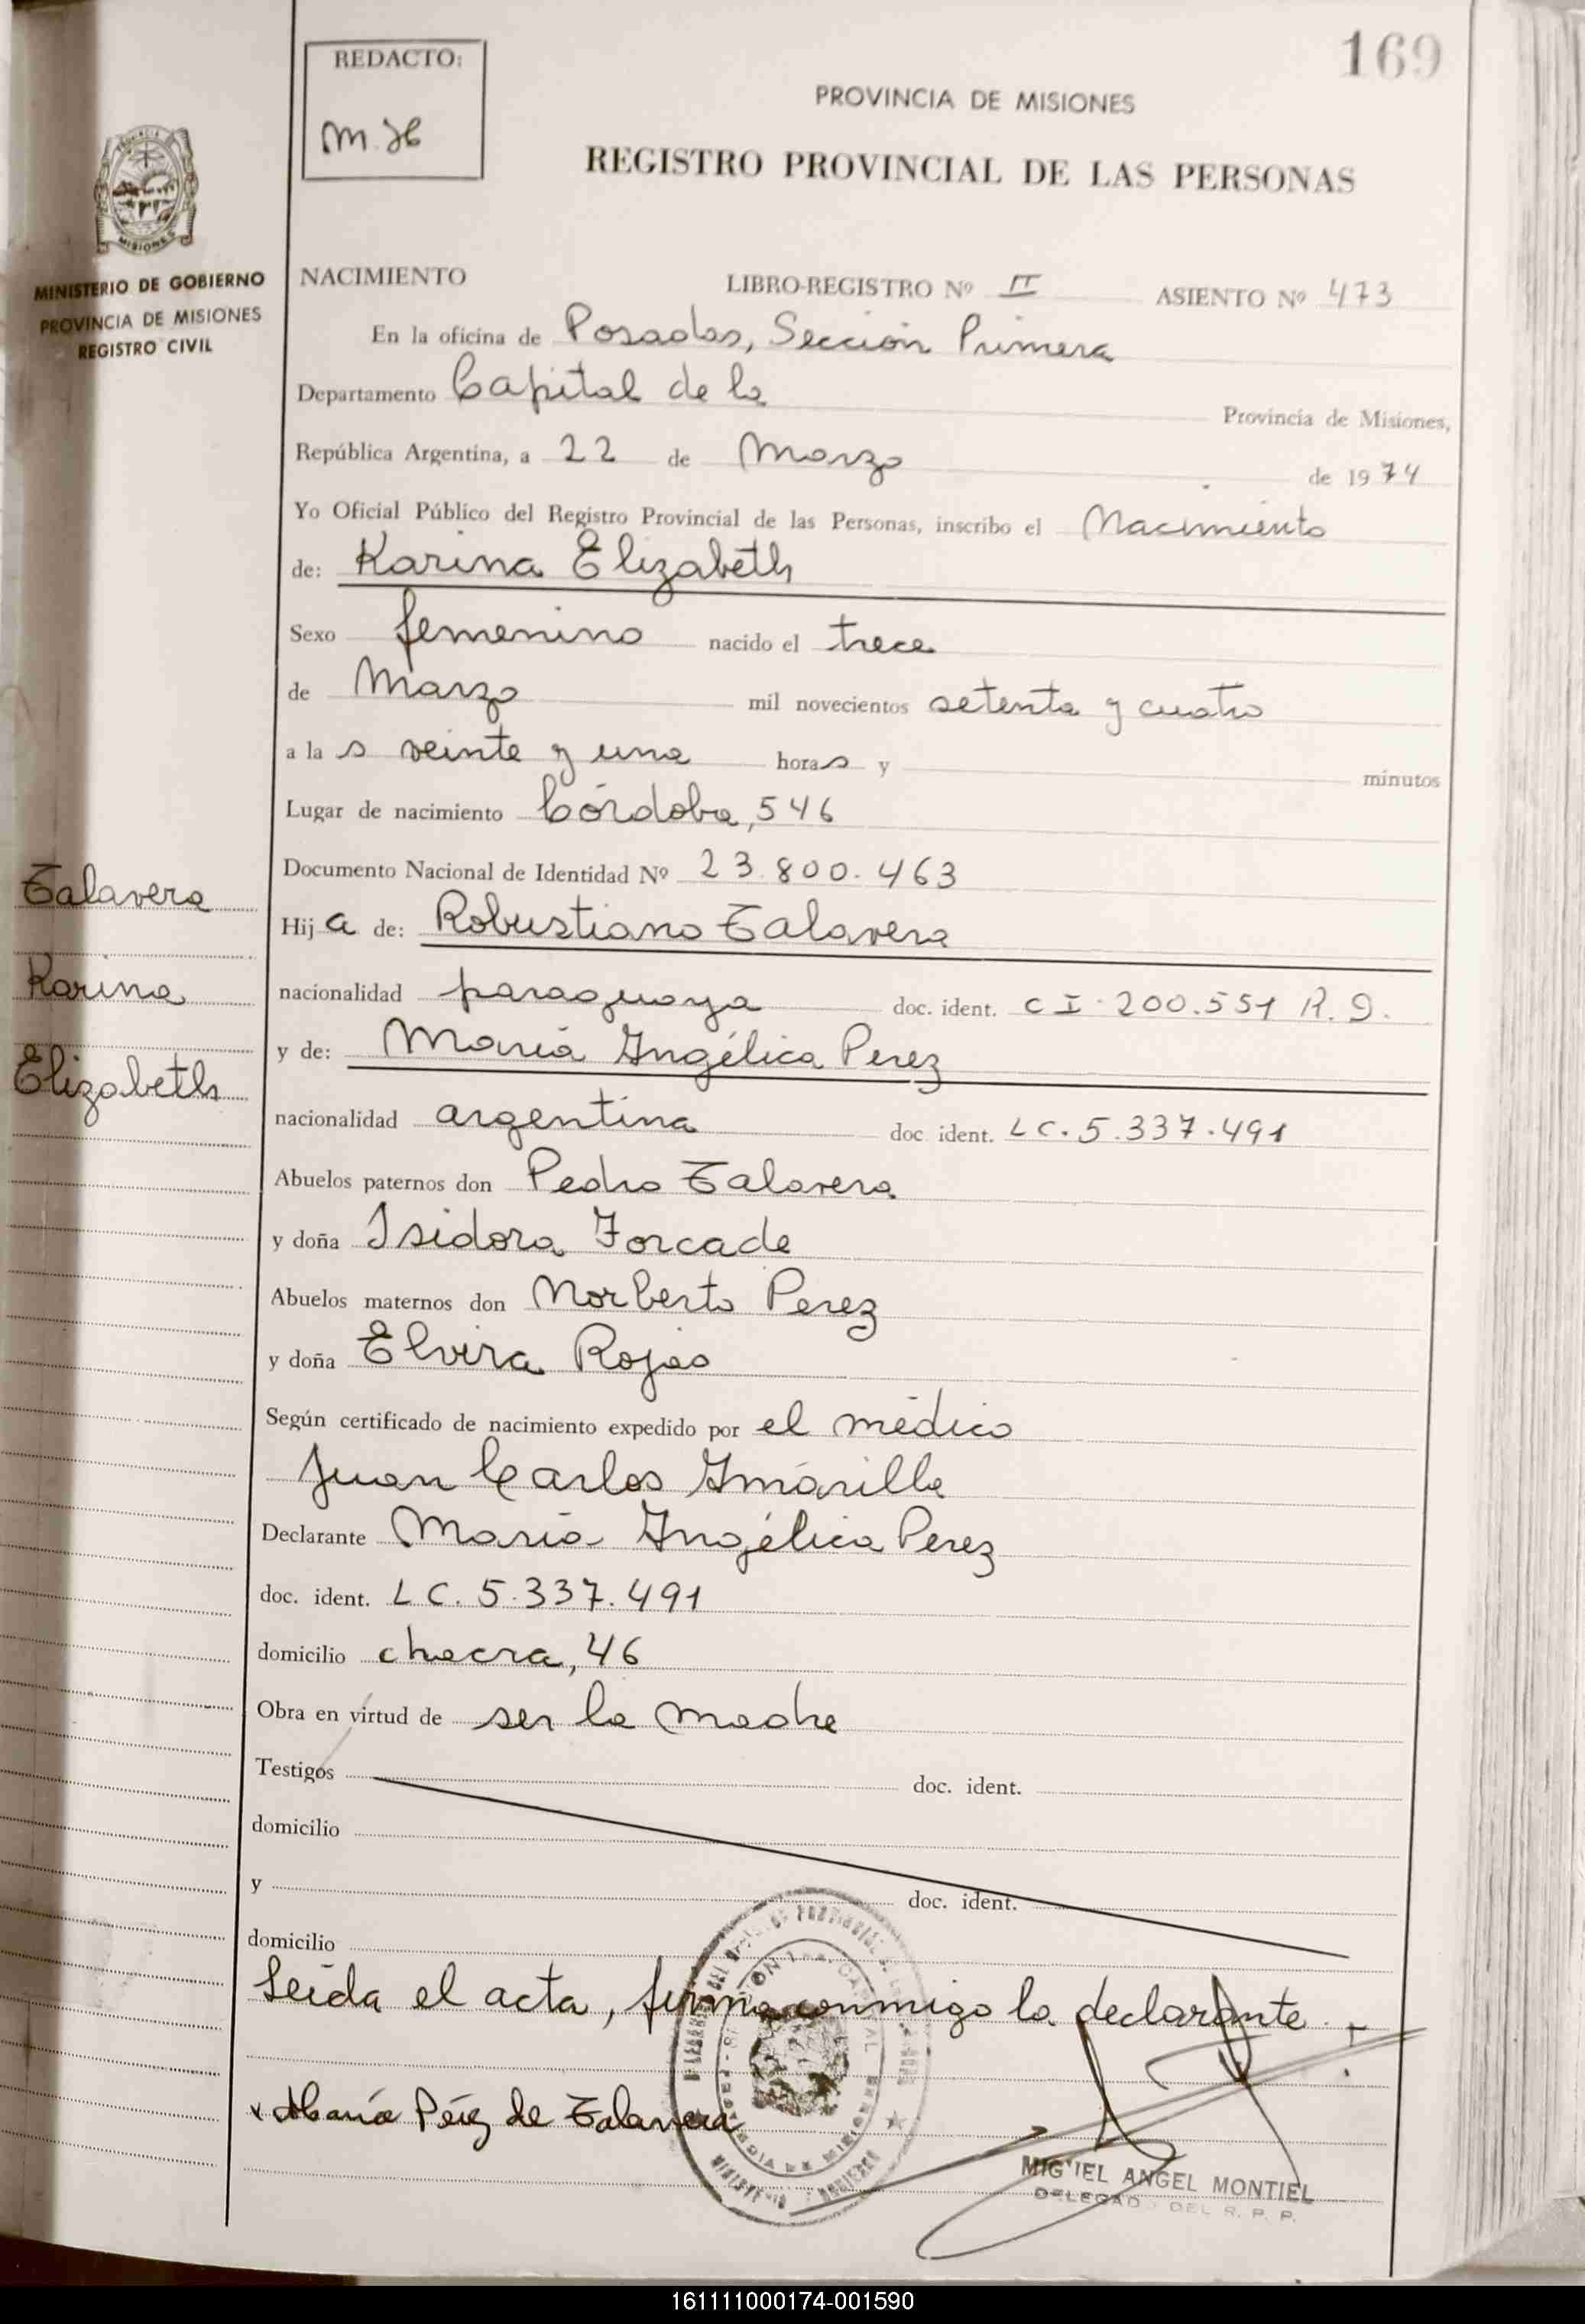 169
REDACTO:
M. H
PROVINCIA DE MISIONES
REGISTRO PROVINCIAL DE LAS PERSONAS
MISIONES
MINISTERIO DE GOBIERNO
PROVINCIA DE MISIONES
REGISTRO CIVIL
NACIMIENTO LIBRO-REGISTRO Nº II ASIENTO Nº 473
En la oficina de Posadas, Sección Primera
Departamento Capital de la Provincia de Misiones,
República Argentina, a 22 de Marzo de 1974
Yo Oficial Público del Registro Provincial de las Personas, inscribo el Nacimiento
de: Karina Elizabeth
Sexo femenino nacido el trece
de Marzo mil novecientos setenta y cuatro
a las veinte y una horas y minutos
Lugar de nacimiento Córdoba, 546
Documento Nacional de Identidad Nº 23.800.463
Talavera
Karina
Elizabeth
Hija de: Robustiano Talavera
nacionalidad paraguaya doc. ident. C I. 200.551 R.P.
y de: María Angélica Perez
nacionalidad argentina doc ident. LC. 5.337.491
Abuelos paternos don Pedro Talavera
y doña Isidora Forcade
Abuelos maternos don Norberto Perez
y doña Elvira Rojas
Según certificado de nacimiento expedido por el médico
Juan Carlos Amarilla
Declarante María Angélica Perez
doc. ident. LC. 5.337.491
domicilio chacra, 46
Obra en virtud de ser la madre
Testigos doc. ident.
domicilio
y doc. ident.
domicilio
Leída el acta, firma conmigo la declarante.
x María Pérez de Talavera
MIGUEL ANGEL MONTIEL
DELEGADO DEL R. P. P.
161111000174-001590